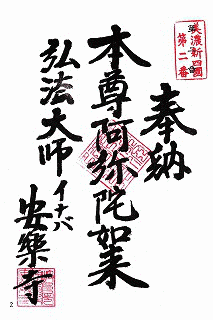 美濃新四国
第二番
奉納
本尊阿弥陀如来
弘法大師
イナバ
安樂寺
2